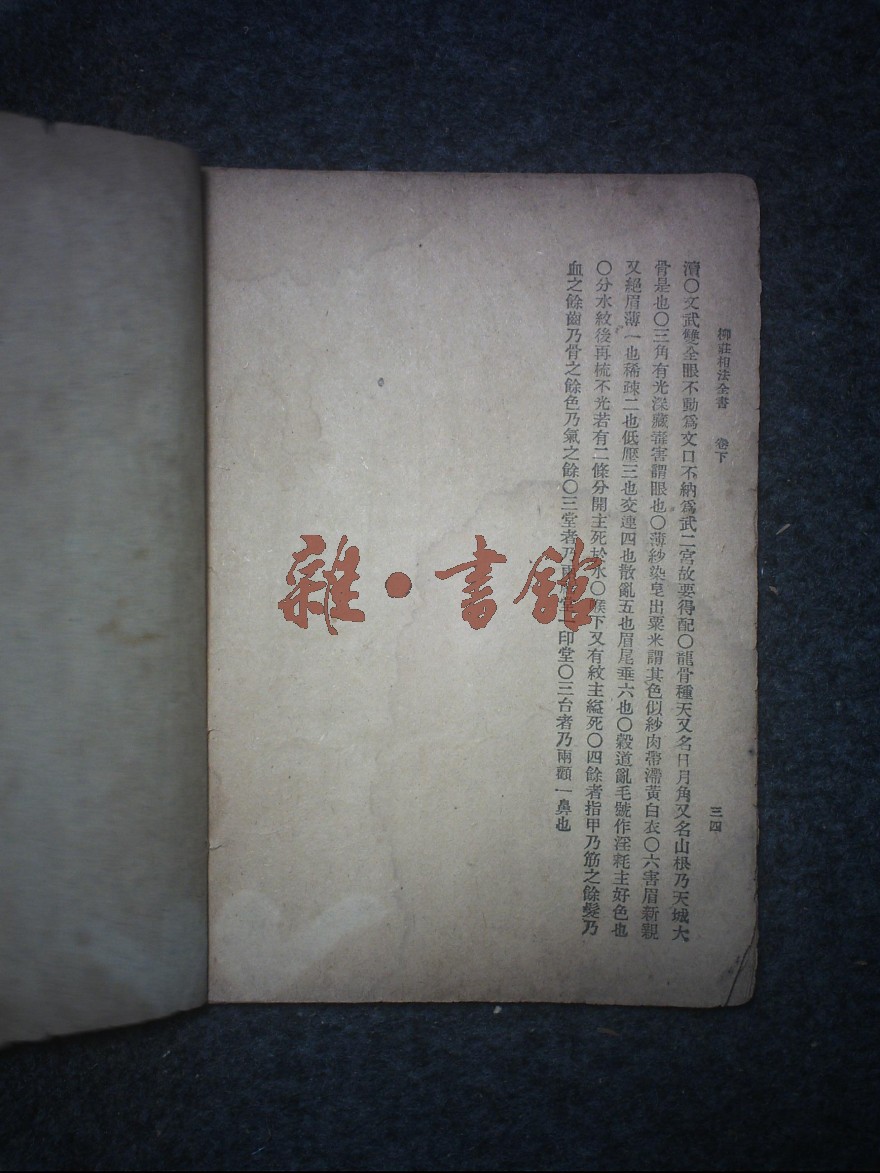 柳莊相法全書 卷下 三四
瀆○文武雙全眼不動為文口不納為武二宮故要得配○龍骨種天又名日月角又名山根乃天城大
骨是也○三角有光深藏毒害謂眼也○薄紗染皂出粟米謂其色似紗肉帶滯黃白衣○六害眉新親
又絕眉薄一也稀疎二也低壓三也交連四也散亂五也眉尾垂六也○穀道亂毛號作淫秏主好色也
○分水紋後再梳不光若有二條分開主死於水○喉下又有紋主縊死○四餘者指甲乃筋之餘髮乃
血之餘齒乃骨之餘色乃氣之餘○三堂者乃兩 堂 印堂○三台者乃兩顴一鼻也
雜·書館